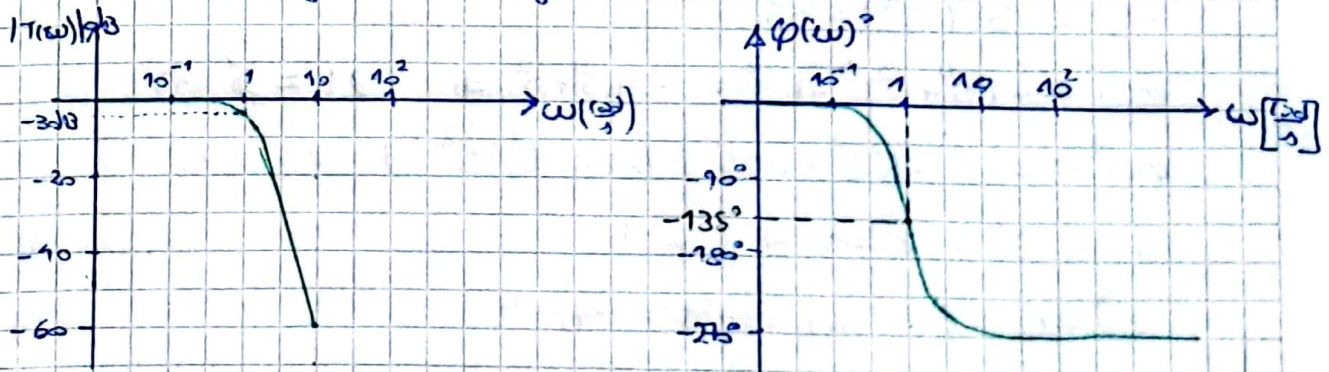 |T(ω)|dB
10⁻¹ 1 10 10²
ω(rad/s)
-3dB
-20
-40
-60
φ(ω)°
10⁻¹ 1 10 10²
ω[rad/s]
-90°
-135°
-180°
-270°